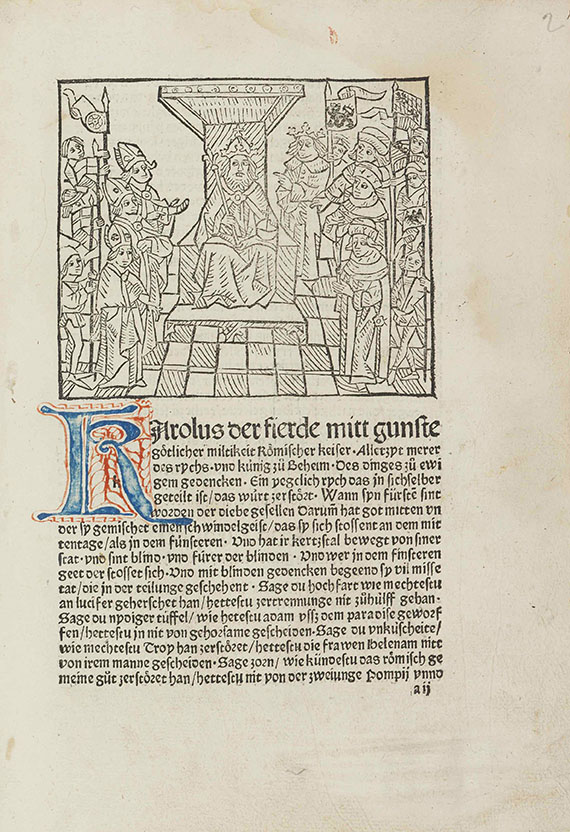 2
Karolus der fierde mitt gunste
götlicher miltikeit Römischer keiser · Allerzyt merer
des rychs · vnd künig zů Beheim · Des dinges zů ewi
gem gedencken · Ein yegclich rych das in sichselber
geteilt ist / das würt zerstört · Wann syn fürstē sint
worden der diebe gesellen Darum̄ hat got mitten vn
der sy gemischet einen schwindelgeist / das sy sich stossent an dem mit
tentage / als in dem fünsteren · Vnd hat ir kertzstal bewegt von siner
stat · vnd sint blind · vnd fürer der blinden · Vnd wer in dem finsteren
geet der stosset sich · Vnd mit blinden gedencken begeend sy vil misse
tat / die in der teilunge geschehent · Sage du hochfart wie mechtestu
an lucifer geherschet han / hettestu zertrennunge nit zühülff gehan ·
Sage du nydiger tüffel / wie hetestu adam vssz dem paradise geworf
fen / hettestu jn nit von gehorsame gescheiden · Sage du vnkuscheite /
wie mechtestu Troy han zerstöret / hettestu die frawen Helenam nitt
von irem manne gescheiden · Sage zorn / wie kündestu das römisch ge
meine gůt zerstöret han / hettestu nit von der zweiunge Pompij vnnd
a ij